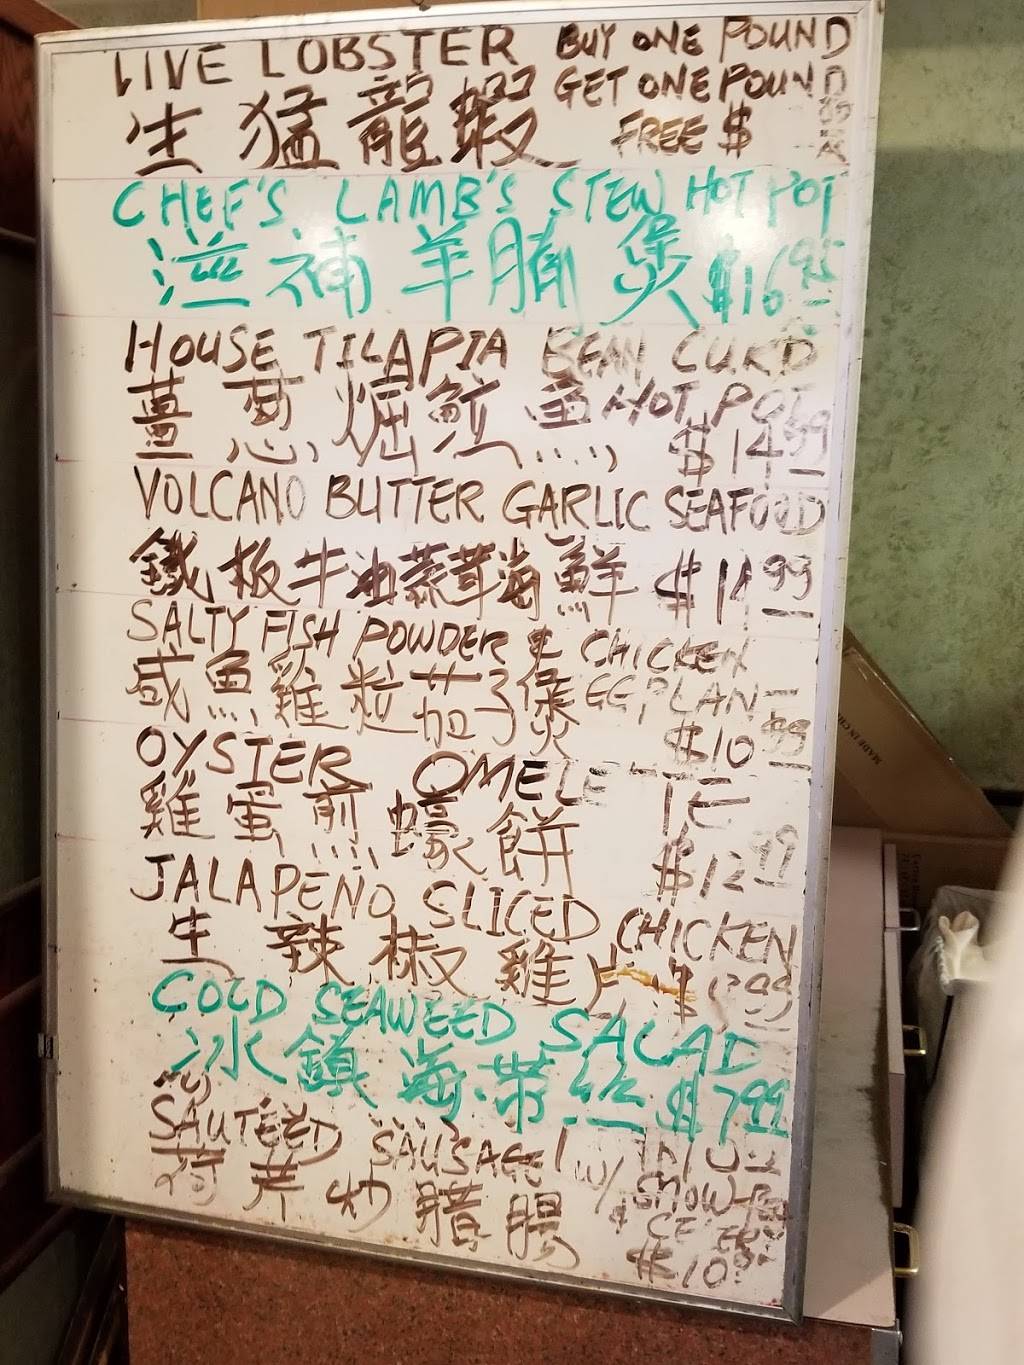 LIVE LOBSTER BUY ONE POUND
GET ONE POUND
生猛龍蝦 FREE $
CHEF'S LAMB'S STEW HOT POT
滋補羊腩煲 $16.95
HOUSE TILAPIA BEAN CURD
HOT POT
薑葱焗鱼 $14.99
VOLCANO BUTTER GARLIC SEAFOOD
鐵板牛油蒜茸海鮮 $14.99
SALTY FISH POWDER & CHICKEN
EGGPLANT
咸魚雞粒茄子煲 $10.99
OYSTER OMELETTE
雞蛋煎蠔餅 $12.99
JALAPENO SLICED CHICKEN
生辣椒雞片 $
COLD SEAWEED SALAD
冰鎮海帶絲 $7.99
SAUTEED SAUSAGE W/
SNOW
荷芹炒腊腸
$10
MADE IN